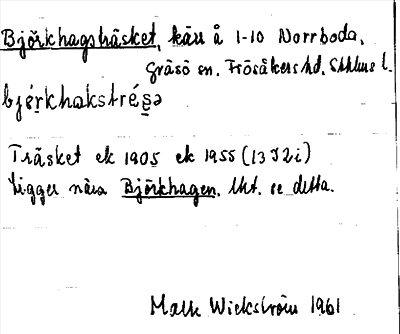 Björkhagsträsket, kärr å 1-10 Norrboda,
Gräsö sn. Frösåkers hd. Sthlms l.
bjérkhakstréșə
Träsket ek 1905 ek 1955 (13 I 2 i)
Ligger nära Björkhagen. Utt. se detta.
Mats Wickström 1961